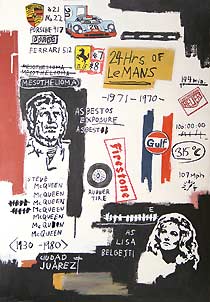 #21
No.22
PORSCHE 917
FERRARI 512
MESOTHELIOMA
MESOTHELIOMA
24 Hrs OF
Le MANS
-1971-1970-
ASBESTOS
EXPOSURE
ASBEST
Firestone
Gulf
315°C
107 MPH
RUBBER
TIRE
STEVE
McQUEEN
McQUEEN
McQUEEN
McQUEEN
McQUEEN
McQUEEN
(1930-1980)
CIUDAD
JUÁREZ
AS
LISA
BELGETTI